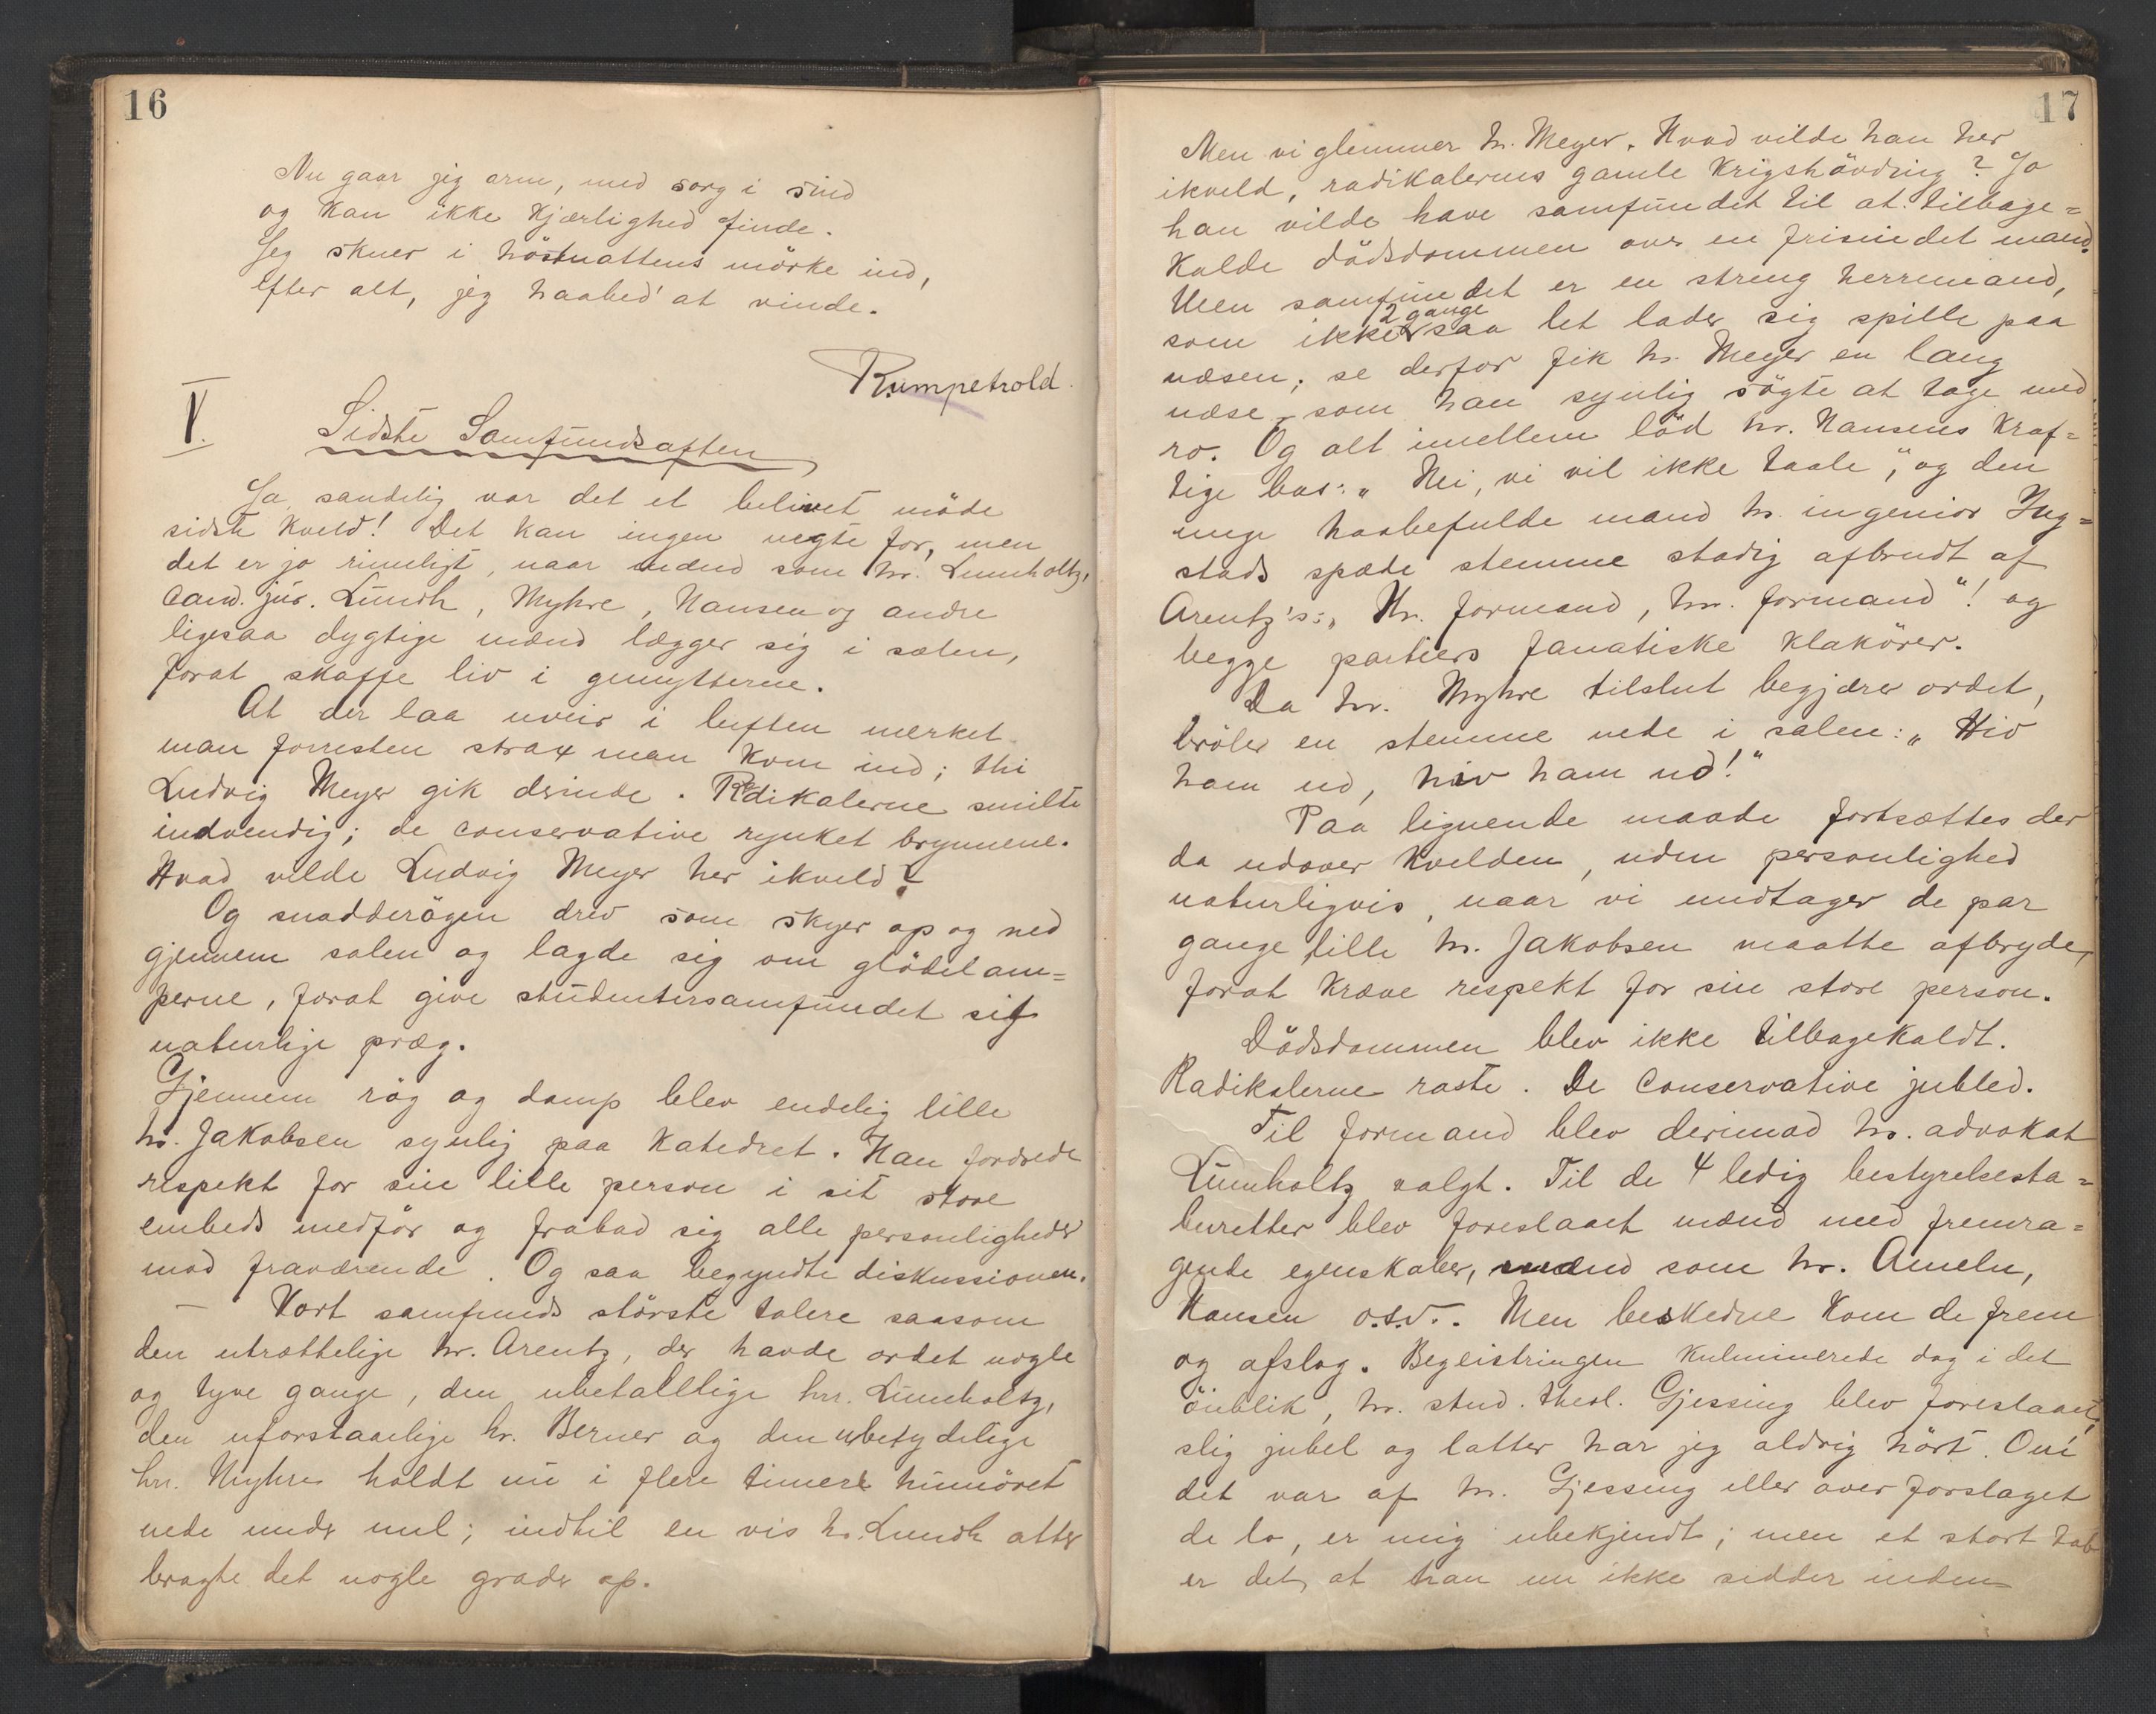 16
Nu gaar jeg arm, med sorg i sind
og kan ikke kjærlighed finde.
Jeg skuer i höstnattens mörke ind,
efter alt, jeg haabed' at vinde.
Rumpetrold.
V.
Sidste Samfundsaften
Ja sandelig var det et belivet möde
sidste kveld! Det kan ingen negte for, men
det er jo rimeligt, naar mænd som hr. Lumholtz,
cand. jur. Lundh, Myhre, Hansen og andre
ligesaa dygtige mænd lægger sig i sælen,
forat skaffe liv i gemytterne.
At der laa uveir i luften merket
man forresten strax man kom ind; thi
Ludvig Meyer gik derinde. Radikalerne smilte
indvendig; de conservative rynket brynene.
Hvad vilde Ludvig Meyer her ikveld?
Og snadderögen drev som skyer op og ned
gjennem salen og lagde sig om glödelam=
perne, forat give studentersamfundet sit
naturlige præg.
Gjennem rög og damp blev endelig lille
hr. Jakobsen synlig paa katedret. Han fordrede
respekt for sin lille person i sit store
embeds medför og frabad sig alle personligheder
mod fraværende. Og saa begyndte diskussionen.
— Vort samfunds störste talere saasom
den utrættelige hr. Arentz, der havde ordet nogle
og tyve gange, den ubetallige hr. Lumholtz,
den uforstaaelige hr. Berner og den ubetydelige
hr. Myhre holdt nu i flere timer humöret
nede under nul; indtil en vis hr. Lundh atter
bragte det nogle grader op.
17
Men vi glemmer hr. Meyer. Hvad vilde han her
ikveld, radikalernes gamle krigshövding? Jo
han vilde have samfundet til at tilbage=
kalde dödsdommen over en frisindet mand.
Men samfundet er en streng herremand,
2 gange
som ikke saa let lader sig spille paa
næsen; se derfor fik hr. Meyer en lang
næse, som han synlig sögte at tage med
ro. Og alt imellem löd hr. Hansens kraf=
tige bas: „Nei, vi vil ikke taale", og den
unge haabefulde mand hr. ingeniör Ing=
stads spæde stemme stadig afbrudt af
Arentz's: „Hr. formand, hr. formand"! og
begge partiers fanatiske klakörer.
Da hr. Myhre tilslut begjærer ordet,
bröler en stemme nede i salen: „Hiv
ham ud, hiv ham ud!"
Paa lignende maade fortsættes der
da udover kvelden, uden personlighed
naturligvis, naar vi undtager de par
gange lille hr. Jakobsen maatte afbryde,
forat kræve respekt for sin store person.
Dödsdommen blev ikke tilbagekaldt.
Radikalerne raste. De conservative jubled.
Til formand blev derimod hr. advokat
Lumholtz valgt. Til de 4 ledig bestyrelsesta=
buretter blev foreslaaet mænd med fremra=
gende egenskaber, mænd som hr. Ameln,
Hansen o.s.v.. Men beskedne kom de frem
og afslog. Begeistringen kulminerede dog i det
öieblik, hr. stud. theol. Gjessing blev foreslaaet,
slig jubel og latter har jeg aldrig hört. Om
det var af hr. Gjessing eller over forslaget
de lo, er mig ubekjendt; men et stort tab
er det, at han nu ikke sidder inden